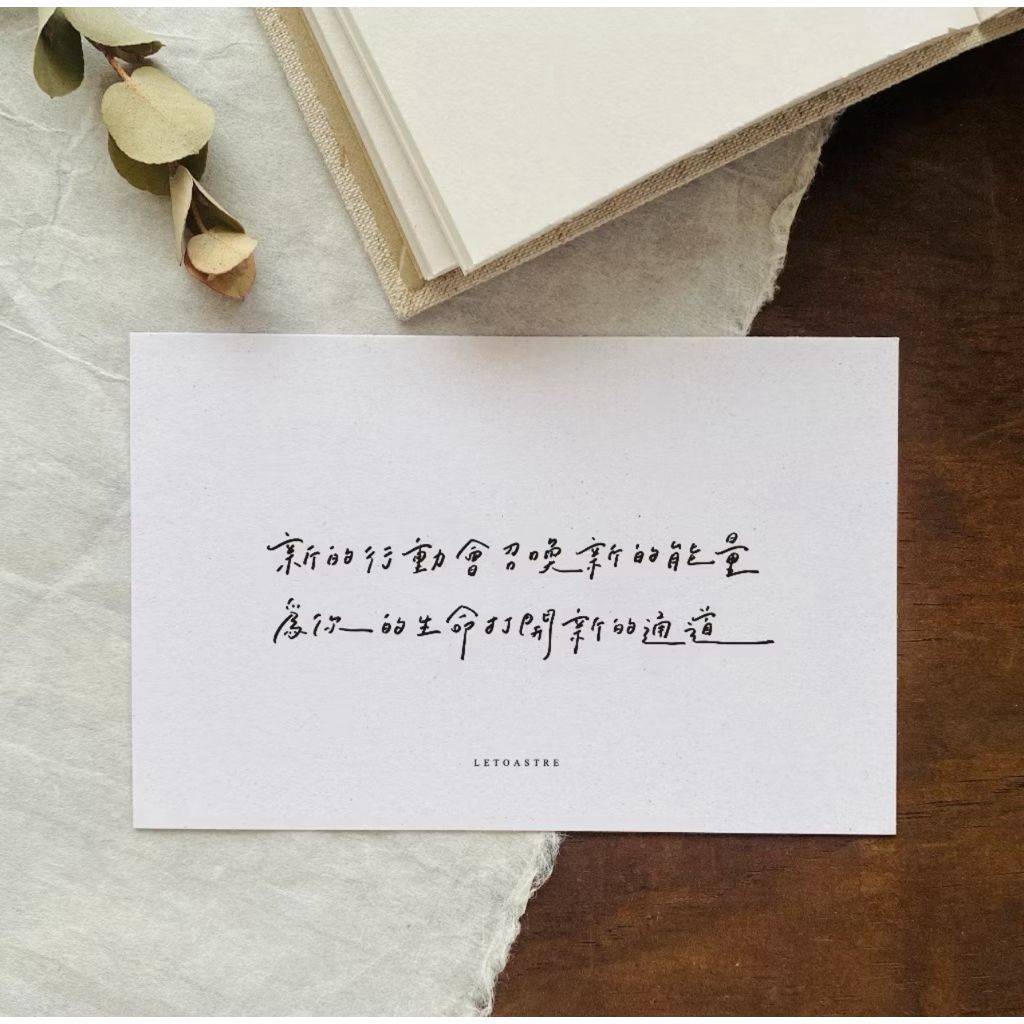 新的行動會召喚新的能量
為你的生命打開新的通道
LETOASTRE